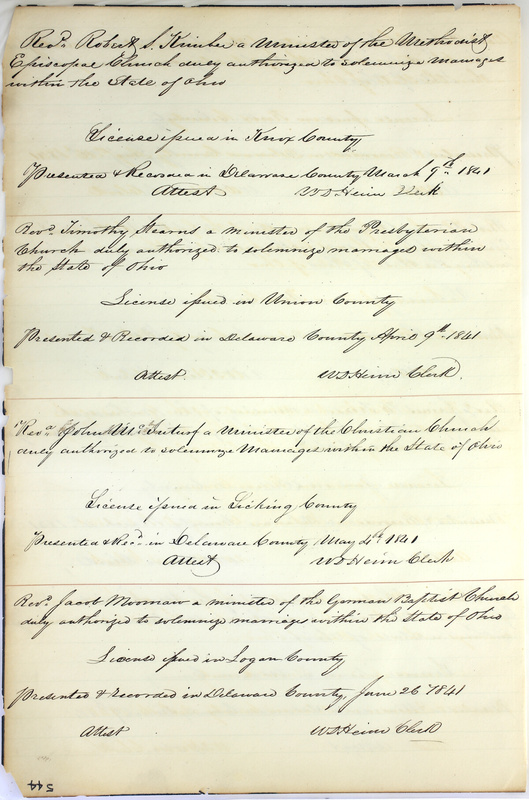 Revd. Robert S. Kimber a Minister of the Methodist
Episcopal Church duly authorized to solemnize marriages
within the State of Ohio
License issued in Knox County
Presented & Recorded in Delaware County March 9th 1841
Attest W. D. Heim Clerk
Revd. Timothy Stearns a minister of the Presbyterian
Church duly authorized to solemnize marriages within
the State of Ohio
License issued in Union County
Presented & Recorded in Delaware County April 9th 1841
Attest. W D Heim Clerk.
Revd. John Mc a Minister of the Christian Church
duly authorized to solemnize Marriages within the State of Ohio
License issued in Licking County
Presented & Recd. in Delaware County May 4th 1841
Attest W D Heim Clerk
Revd. Jacob Moomaw a minister of the German Baptist Church
duly authorized to solemnize marriages within the State of Ohio
License issued in Logan County
Presented & Recorded in Delaware County June 26 1841
Attest W D Heim Clerk
544